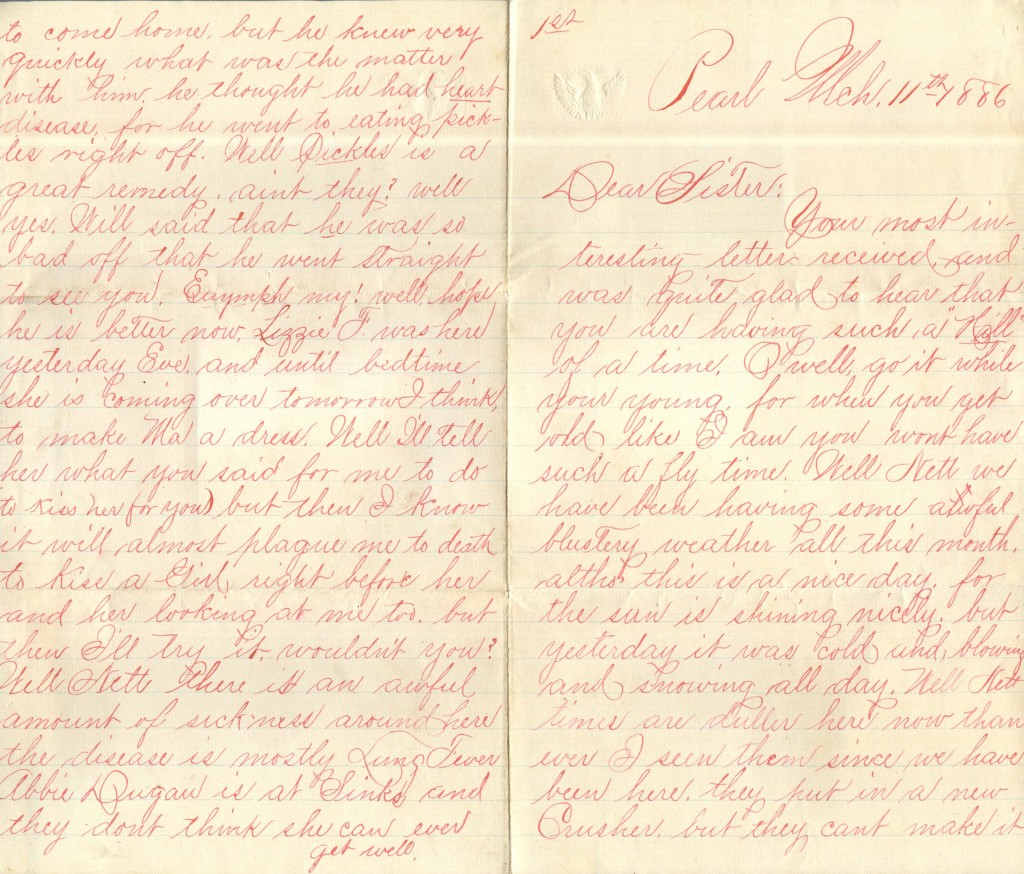 to come home. but he knew very
quickly what was the matter
with him. he thought he had heart
disease. for he went to eating pick-
les right off. Well Pickles is a
great remedy. aint they? well
yes. Will said that he was so
bad off that he went straight
to see you. my! well, hope
he is better now. Lizzie F. was here
yesterday Eve. and until bedtime
she is coming over tomorrow I think,
to make Ma a dress. Well I'll tell
her what you said for me to do
to kiss her (for you) but then I know
it will almost plague me to death
to kiss a Girl, right before her
and her looking at me too. but
then I'll try it. wouldn't you?
Well Nett there is an awful
amount of sickness around here
the disease is mostly Lung Fever
Abbie Dugan is at Sinks and
they dont think she can ever
get well.
1st
Pearl Mch. 11th 1886
Dear Sister:
Your most in-
teresting letter received, and
was quite glad to hear that
you are having such a "Hall"
of a time. O well, go it while
your young, for when you get
old like I am you wont have
such a fly time. Well Nett we
have been having some awful
blustery weather all this month.
altho' this is a nice day. for
the sun is shining nicely. but
yesterday it was cold and blowing
and snowing all day. Well Nett
times are duller here now than
ever I seen them since we have
been here. they put in a new
Crusher. but they cant make it